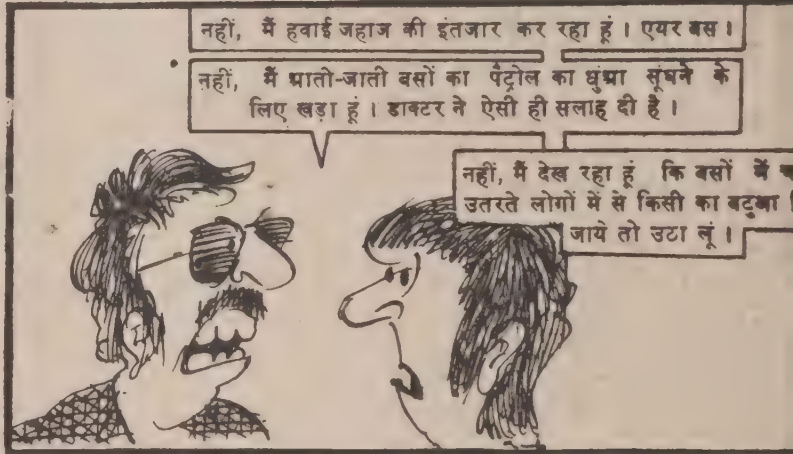 नहीं, मैं हवाई जहाज की इंतजार कर रहा हूं। एयर बस।
नहीं, मैं आतो-जाती बसों का पैट्रोल का धुंआ सूंघने के
लिए खड़ा हूं। डाक्टर ने ऐसी ही सलाह दी है।
नहीं, मैं देख रहा हूं कि बसों में
उतरते लोगों में से किसी का बटुआ
जाये तो उटा लूं।